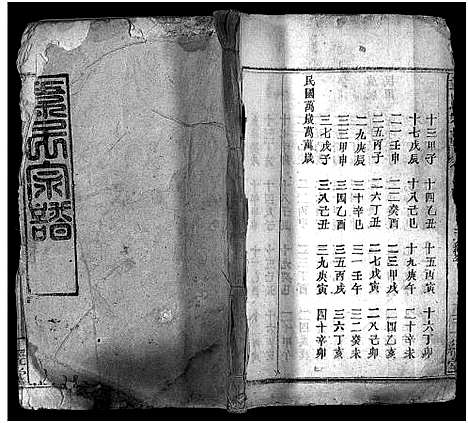 十三甲子 十四乙丑 十五丙寅 十六丁卯
十七戊辰 十八己巳 十九庚午 二十辛未
二一壬申 二二癸酉 二三甲戌 二四乙亥
二五丙子 二六丁丑 二七戊寅 二八己卯
二九庚辰 三十辛巳 三一壬午 三二癸未
三三甲申 三四乙酉 三五丙戌 三六丁亥
三七戊子 三八己丑 三九庚寅 四十辛卯
民國萬歲萬萬歲
氏宗譜